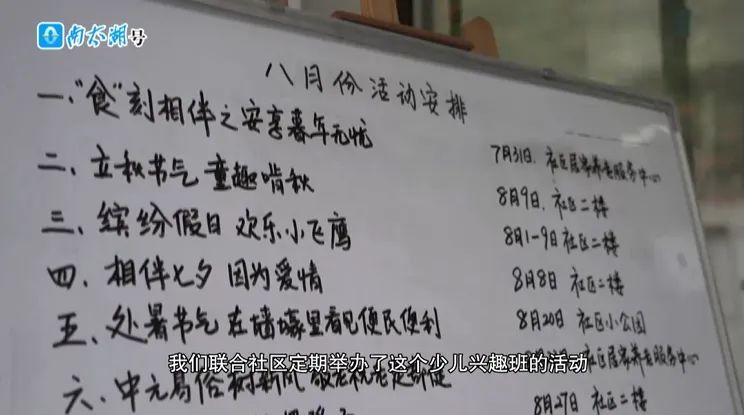 南太湖号
八月份活动安排
一、"食"刻相伴之安享暮年无忧 7月31日、社区居家养老服务中心
二、立秋节气 童趣啃秋 8月9日、社区二楼
三、缤纷假日 欢乐小飞鹰 8月1-9日 社区二楼
四、相伴七夕 因为爱情 8月8日 社区二楼
五、处暑节气 在墙壕里看见便民便利 8月20日 社区小公园
我们联合社区定期举办了这个少儿兴趣班的活动
六、中元易俗树新风 社区居家养老服务中心
8月27日 社区二楼